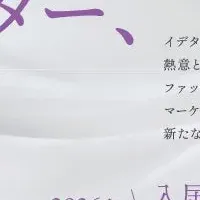 ダー、
イデタ
熱意と
ファッ
マーケ
新たな
入居